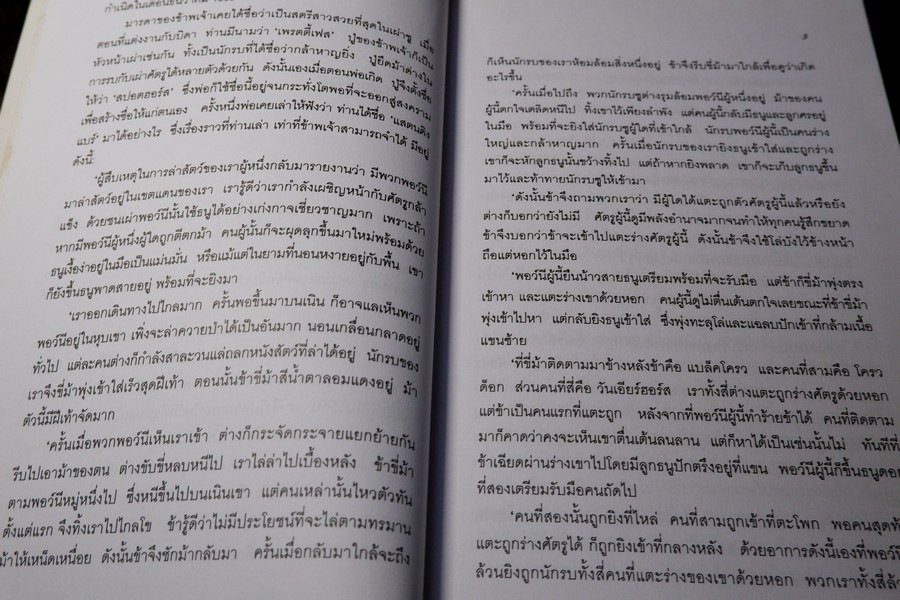 กำเนิดในเดือนธันวาคม
มารดาของข้าพเจ้าเคยได้ชื่อว่าเป็นสตรีสาวสวยที่สุดในเผ่าซู เมื่อ
ตอนที่แต่งงานกับบิดา ท่านมีนามว่า ‘เพรตตี้เฟส’ ปู่ของข้าพเจ้าก็เป็น
หัวหน้าเผ่าเช่นกัน ทั้งเป็นนักรบที่ได้ชื่อว่ากล้าหาญยิ่ง ปู่ยึดม้าด่างใน
การรบกับเผ่าศัตรูได้หลายตัวด้วยกัน ดังนั้นเองเมื่อตอนพ่อเกิด ปู่จึงตั้งชื่อ
ให้ว่า ‘สปอตฮอร์ส’ ซึ่งพ่อก็ใช้ชื่อนี้อยู่จนกระทั่งโตพอที่จะออกสู่สงคราม
เพื่อสร้างชื่อให้แก่ตนเอง ครั้งหนึ่งพ่อเคยเล่าให้ฟังว่า ท่านได้ชื่อ ‘แสตนดิง
แบร์’ มาได้อย่างไร ซึ่งเรื่องราวที่ท่านเล่า เท่าที่ข้าพเจ้าสามารถจำได้ มีอยู่
ดังนี้:
‘ผู้สืบเหตุในการล่าสัตว์ของเราผู้หนึ่งกลับมารายงานว่า มีพวกพอว์นี
มาล่าสัตว์อยู่ในเขตแดนของเรา เรารู้ดีว่าเรากำลังเผชิญหน้ากับศัตรูกล้า
แข็ง ด้วยชนเผ่าพอว์นีนั้นใช้ธนูได้อย่างเก่งกาจเชี่ยวชาญมาก เพราะถ้า
หากมีพอว์นีผู้หนึ่งผู้ใดถูกตีตกม้า คนผู้นั้นก็จะผุดลุกขึ้นมาใหม่พร้อมด้วย
ธนูเงื้อง่าอยู่ในมือเป็นแม่นมั่น หรือแม้แต่ในยามที่นอนหงายอยู่กับพื้น เขา
ก็ยังขึ้นธนูพาดสายอยู่ พร้อมที่จะยิงมา
‘เราออกเดินทางไปไกลมาก ครั้นพอขึ้นมาบนเนิน ก็อาจแลเห็นพวก
พอว์นีอยู่ในหุบเขา เพิ่งจะล่าควายป่าได้เป็นอันมาก นอนเกลื่อนกลาดอยู่
ทั่วไป แต่ละคนต่างก็กำลังสาละวนแล่ถลกหนังสัตว์ที่ล่าได้อยู่ นักรบของ
เราจึงขี่ม้าพุ่งเข้าใส่เร็วสุดฝีเท้า ตอนนั้นข้าขี่ม้าสีน้ำตาลอมแดงอยู่ ม้า
ตัวนี้มีฝีเท้าจัดมาก
‘ครั้นเมื่อพวกพอว์นีเห็นเราเข้า ต่างก็กระจัดกระจายแยกย้ายกัน
รีบไปเอาม้าของตน ต่างขับขี่หลบหนีไป เราไล่ล่าไปเบื้องหลัง ข้าขี่ม้า
ตามพอว์นีหมู่หนึ่งไป ซึ่งหนีขึ้นไปบนเนินเขา แต่คนเหล่านั้นไหวตัวทัน
ตั้งแต่แรก จึงทิ้งเราไปไกลโข ข้ารู้ดีว่าไม่มีประโยชน์ที่จะไล่ตามทรมาน
ม้าให้เหน็ดเหนื่อย ดังนั้นข้าจึงชักม้ากลับมา ครั้นเมื่อกลับมาใกล้จะถึง
ก็เห็นนักรบของเราห้อมล้อมสิ่งหนึ่งอยู่ ข้าจึงรีบขี่ม้ามาใกล้เพื่อดูว่าเกิด
อะไรขึ้น
‘ครั้นเมื่อไปถึง พวกนักรบซูต่างรุมล้อมพอว์นีผู้หนึ่งอยู่ ม้าของคน
ผู้นี้ตกใจเตลิดหนีไป ทิ้งเขาไว้เพียงลำพัง แต่คนผู้นี้กลับมีธนูและลูกศรอยู่
ในมือ พร้อมที่จะยิงใส่นักรบซูผู้ใดที่เข้าใกล้ นักรบพอว์นีผู้นี้เป็นคนร่าง
ใหญ่และกล้าหาญมาก ครั้นเมื่อนักรบของเรายิงธนูเข้าใส่และถูกร่าง
เขาก็จะหักลูกธนูนั้นขว้างทิ้งไป แต่ถ้าหากยิงพลาด เขาก็จะเก็บลูกธนูขึ้น
มาไว้และท้าทายนักรบซูให้เข้ามา
‘ดังนั้นข้าจึงถามพวกเราว่า มีผู้ใดได้แตะถูกตัวศัตรูผู้นี้แล้วหรือยัง
ต่างก็บอกว่ายังไม่มี ศัตรูผู้นี้ดูมีพลังอำนาจมากจนทำให้ทุกคนรู้สึกขยาด
ข้าจึงบอกว่าข้าจะเข้าไปแตะร่างศัตรูผู้นี้ ดังนั้นข้าจึงใช้โล่บังไว้ข้างหน้า
ถือแต่หอกไว้ในมือ
‘พอว์นีผู้นี้ยืนน้าวสายธนูเตรียมพร้อมที่จะรับมือ แต่ข้าก็ขี่ม้าพุ่งตรง
เข้าหา และแตะร่างเขาด้วยหอก คนผู้นี้ดูไม่ตื่นเต้นตกใจเลยขณะที่ข้าขี่ม้า
พุ่งเข้าไปหา แต่กลับยิงธนูเข้าใส่ ซึ่งพุ่งทะลุโล่และแฉลบปักเข้าที่กล้ามเนื้อ
แขนซ้าย
‘ที่ขี่ม้าติดตามมาข้างหลังข้าคือ แบล็คโครว และคนที่สามคือ โครว
ด็อก ส่วนคนที่สี่คือ วันเอียร์ฮอร์ส เราทั้งสี่ต่างแตะถูกร่างศัตรูด้วยหอก
แต่ข้าเป็นคนแรกที่แตะถูก หลังจากที่พอว์นีผู้นี้ทำร้ายข้าได้ คนที่ติดตาม
มาก็คาดว่าคงจะเห็นเขาตื่นเต้นลนลาน แต่ก็หาได้เป็นเช่นนั้นไม่ ทันทีที่
ข้าเฉียดผ่านร่างเขาไปโดยมีลูกธนูปักตรึงอยู่ที่แขน พอว์นีผู้นี้ก็ขึ้นธนูดอก
ที่สองเตรียมรับมือคนถัดไป
‘คนที่สองนั้นถูกยิงที่ไหล่ คนที่สามถูกเข้าที่ตะโพก พอคนสุดท้า
แตะถูกร่างศัตรูได้ ก็ถูกยิงเข้าที่กลางหลัง ด้วยอาการดังนี้เองที่พอว์นี
ล้วนยิงถูกนักรบทั้งสี่คนที่แตะร่างของเขาด้วยหอก พวกเราทั้งสี่ล้ว